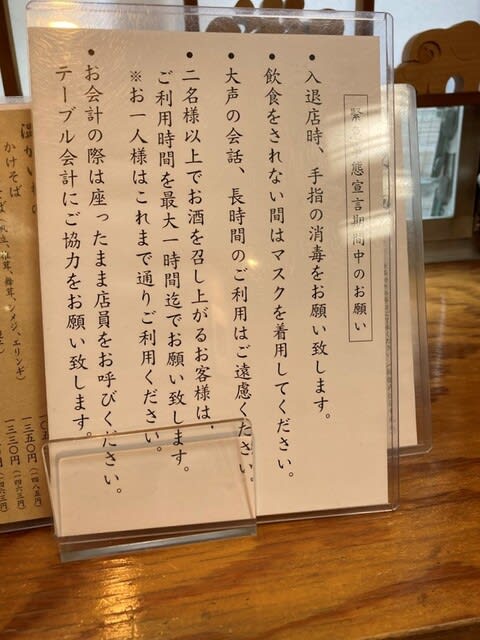 緊急事態宣言期間中のお願い
•入退店時、手指の消毒をお願い致します。
•飲食をされない間はマスクを着用してください。
•大声の会話、長時間のご利用はご遠慮ください。
•二名様以上でお酒を召し上がるお客様は、
ご利用時間を最大一時間迄でお願い致します。
※お一人様はこれまで通りご利用ください。
•お会計の際は座ったまま店員をお呼びください。
テーブル会計にご協力をお願い致します。
温かい
かけそば
椎茸、舞茸、シメジ、エリンギ)
一三五〇円(一四八五円)
一三三〇円(一四六三円)